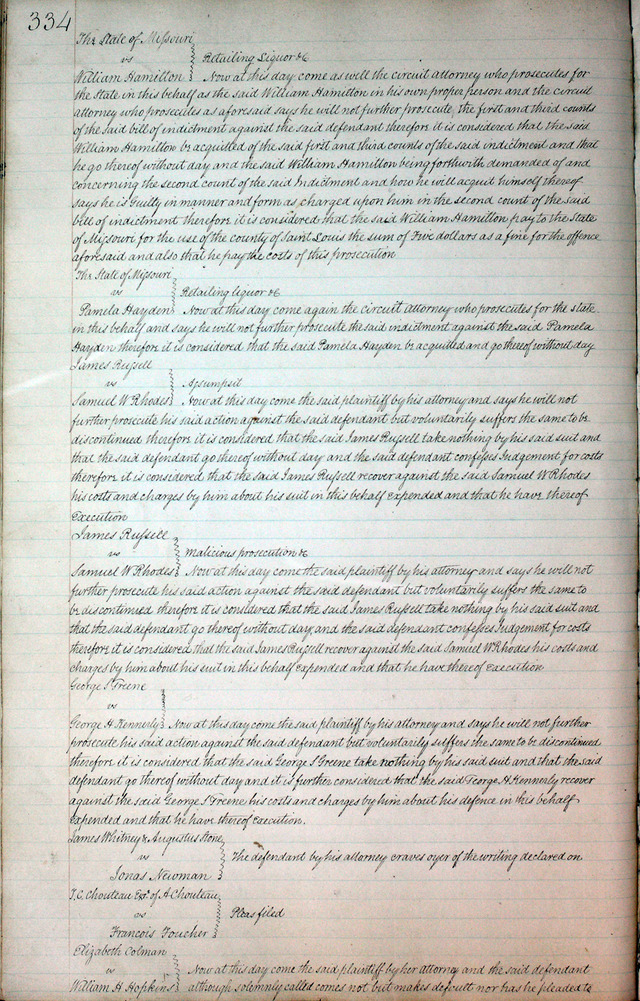 334
The State of Missouri
vs
Retailing Liquor &c
William Hamilton Now at this day come as well the circuit attorney who prosecutes for
the State in this behalf as the said William Hamilton in his own proper person and the circuit
attorney who prosecutes as aforesaid says he will not further prosecute, the first and third counts
of the said bill of indictment against the said defendant therefore it is considered that the said
William Hamilton be acquitted of the said first and third counts of the said indictment and that
he go thereof without day and the said William Hamilton being forthwith demanded of and
concerning the second count of the said Indictment and how he will acquit himself thereof
says he is Guilty in manner and form as charged upon him in the second count of the said
bill of indictment therefore it is considered that the said William Hamilton pay to the State
of Missouri for the use of the county of Saint Louis the sum of Five dollars as a fine for the offence
aforesaid and also that he pay the costs of this prosecution
The State of Missouri
vs
Retailing liquor &c
Pamela Hayden Now at this day come again the circuit attorney who prosecutes for the state
in this behalf and says he will not further prosecute the said indictment against the said Pamela
Hayden therefore it is considered that the said Pamela Hayden be acquitted and go thereof without day
James Russell
vs
Assumpsit
Samuel W Rhodes Now at this day come the said plaintiff by his attorney and says he will not
further prosecute his said action against the said defendant but voluntarily suffers the same to be
discontinued therefore it is considered that the said James Russell take nothing by his said suit and
that the said defendant go thereof without day and the said defendant confesses Judgement for costs
therefore it is considered that the said James Russell recover against the said Samuel W Rhodes
his costs and charges by him about his suit in this behalf expended and that he have thereof
Execution
James Russell
vs
malicious prosecution &c
Samuel W Rhodes Now at this day come the said plaintiff by his attorney and says he will not
further prosecute his said action against the said defendant but voluntarily suffers the same to
be discontinued therefore it is considered that the said James Russell take nothing by his said suit and
that the said defendant go thereof without day and the said defendant confesses Judgement for costs
therefore it is considered that the said James Russell recover against the said Samuel W Rhodes his costs and
charges by him about his suit in this behalf expended and that he have thereof execution
George S Greene
vs
George H Kennerly Now at this day come the said plaintiff by his attorney and says he will not further
prosecute his said action against the said defendant but voluntarily suffers the same to be discontinued
therefore it is considered that the said George S Greene take nothing by his said suit and that the said
defendant go thereof without day and it is further considered that the said George H Kennerly recover
against the said George S Greene his costs and charges by him about his defence in this behalf
expended and that he have thereof execution.
James Whitney & Augustus Stone
vs
The defendant by his attorney craves oyer of the writing declared on
Jonas Newman
T. C. Chouteau Exr. of A Chouteau
vs
Pleas filed
Francois Foucher
Elizabeth Colman
vs
Now at this day come the said plaintiff by her attorney and the said defendant
William H Hopkins although solemnly called comes not but makes default nor has he pleaded to